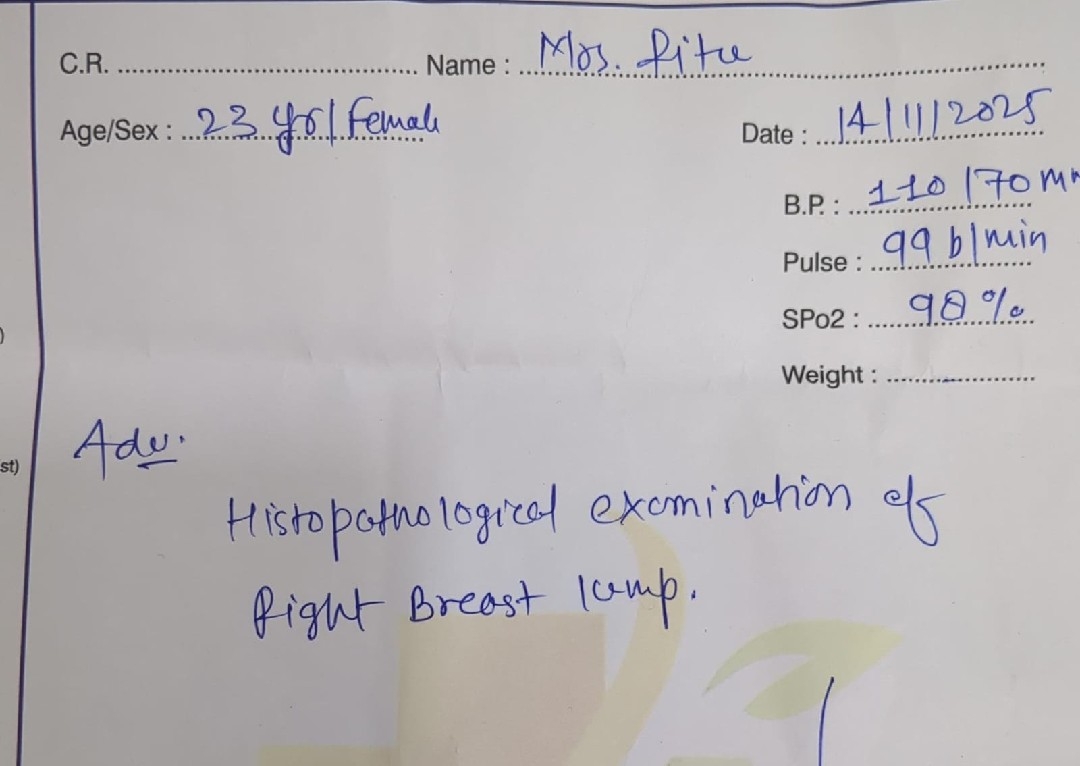 C.R. .......... Name : Mrs. Ritu
Age/Sex : 23 yr/Female
Date : 14/11/2025
B.P. : 110/70 m
Pulse : 99 b/min
SPo2 : 98 %
Weight : ..........
)
st)
Adv.
Histopathological examination of
Right Breast lump.